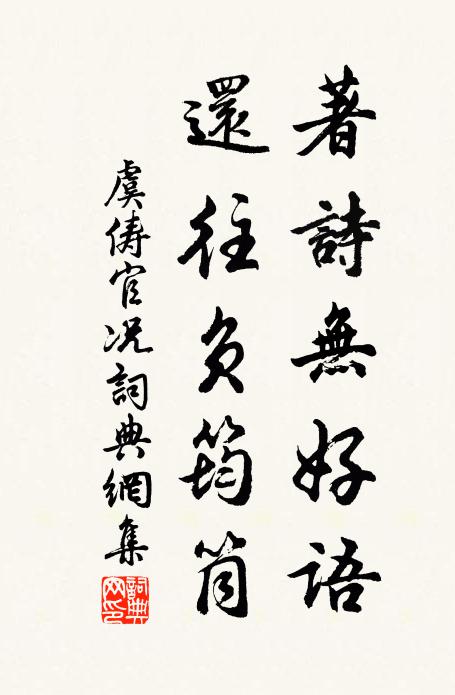 著詩無好語
還往负筠筒
虞儔官况詞典網集
詞典网印